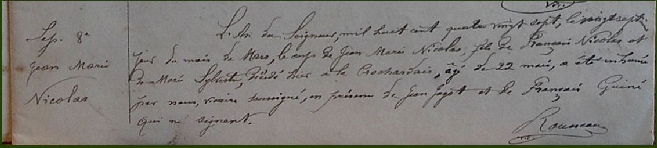 Sep. 8e
Jean Marie
Nicolas
L'An du Seigneur, mil huit cent quatre vingt sept, le vingt sept
jour du mois de Mars, le corps de Jean Marie Nicolas, fils de François Nicolas et
de Marie décédé hier à la âgé de 22 mois, a été inhumé
par nous, vicaire soussigné, en présence de Jean Jagot et de François Guiné
qui ne signent.
Rousseau